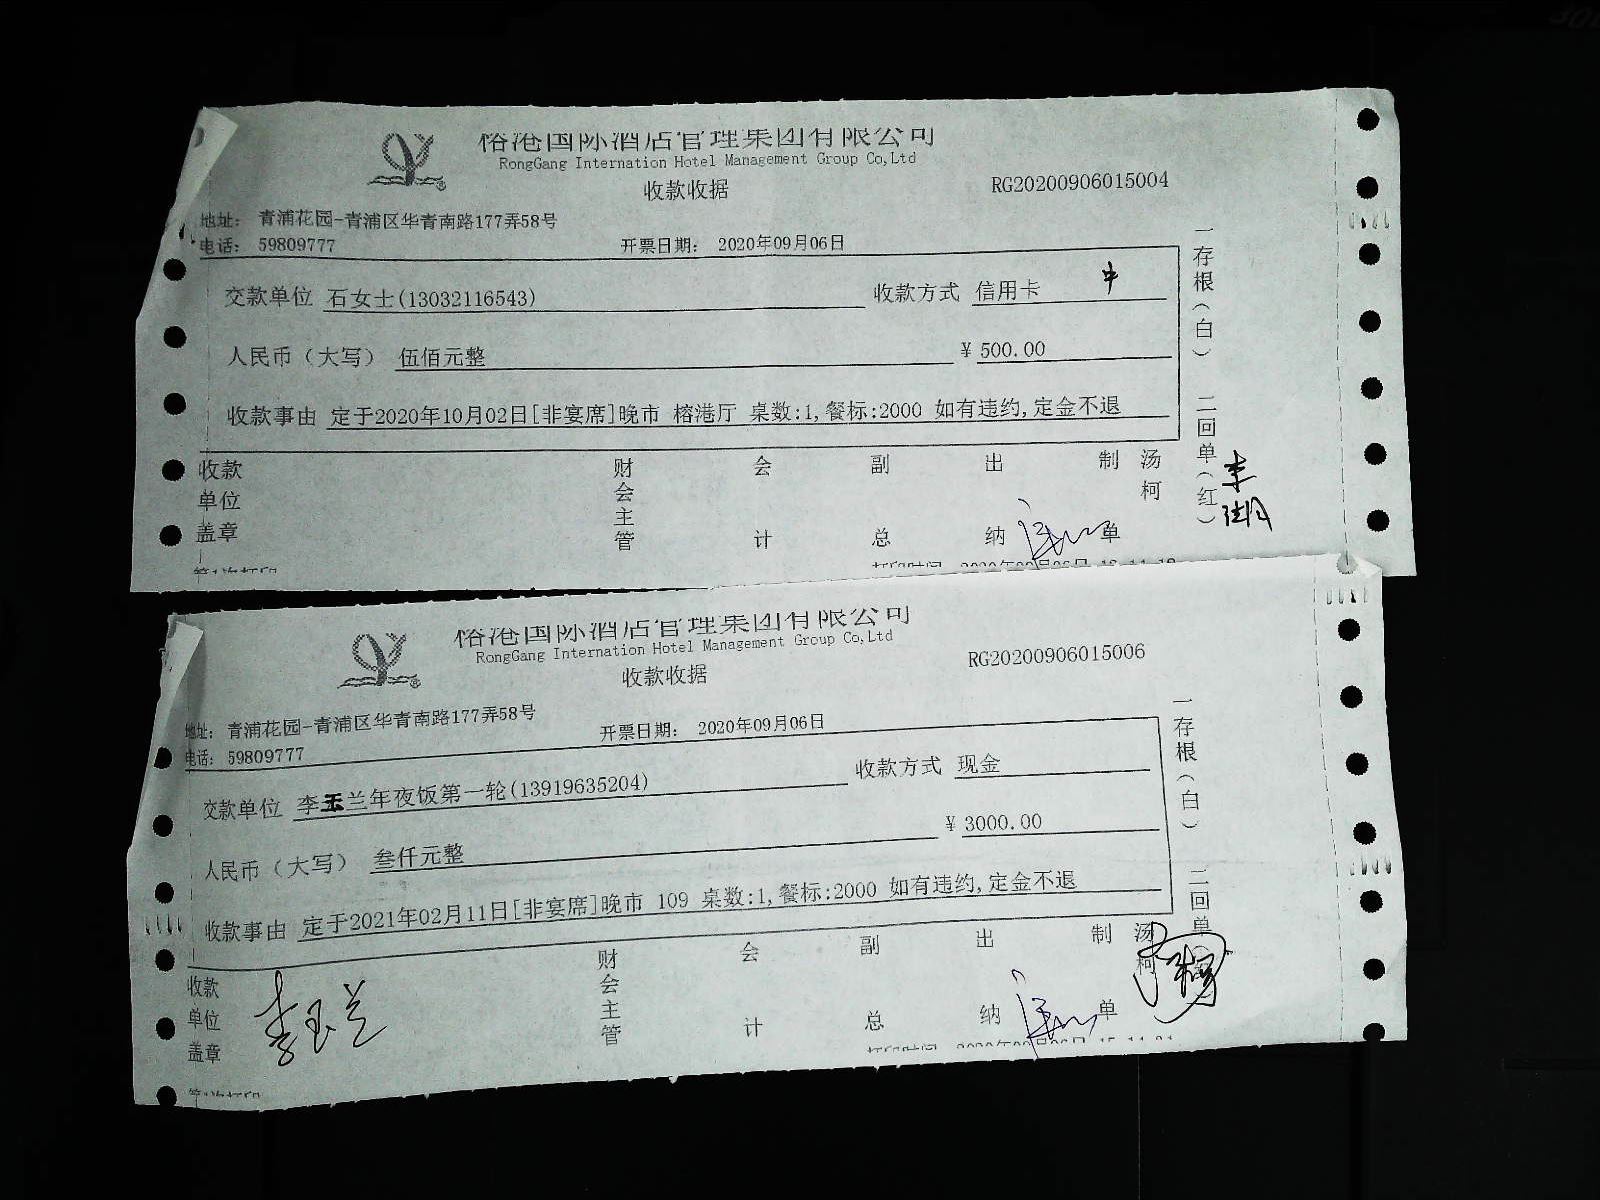 榕港国际酒店管理集团有限公司
RongGang Internation Hotel Management Group Co,Ltd
收款收据
RG20200906015004
地址: 青浦花园-青浦区华青南路177弄58号
电话: 59809777
开票日期: 2020年09月06日
交款单位 石女士(13032116543)
收款方式 信用卡
人民币(大写) 伍佰元整
¥ 500.00
收款事由 定于2020年10月02日[非宴席]晚市 榕港厅 桌数:1,餐标:2000 如有违约,定金不退
一存根(白) 二回单(红)
收款单位盖章
财会主管
会计
副总
出纳
制单
汤柯
第1次打印
打印时间
榕港国际酒店管理集团有限公司
RongGang Internation Hotel Management Group Co,Ltd
收款收据
RG20200906015006
地址: 青浦花园-青浦区华青南路177弄58号
电话: 59809777
开票日期: 2020年09月06日
交款单位 李玉兰年夜饭第一轮(13919635204)
收款方式 现金
人民币(大写) 叁仟元整
¥ 3000.00
收款事由 定于2021年02月11日[非宴席]晚市 109 桌数:1,餐标:2000 如有违约,定金不退
一存根(白) 二回单
收款单位盖章
李玉兰
财会主管
会计
副总
出纳
制单
汤柯
第1次打印
打印时间